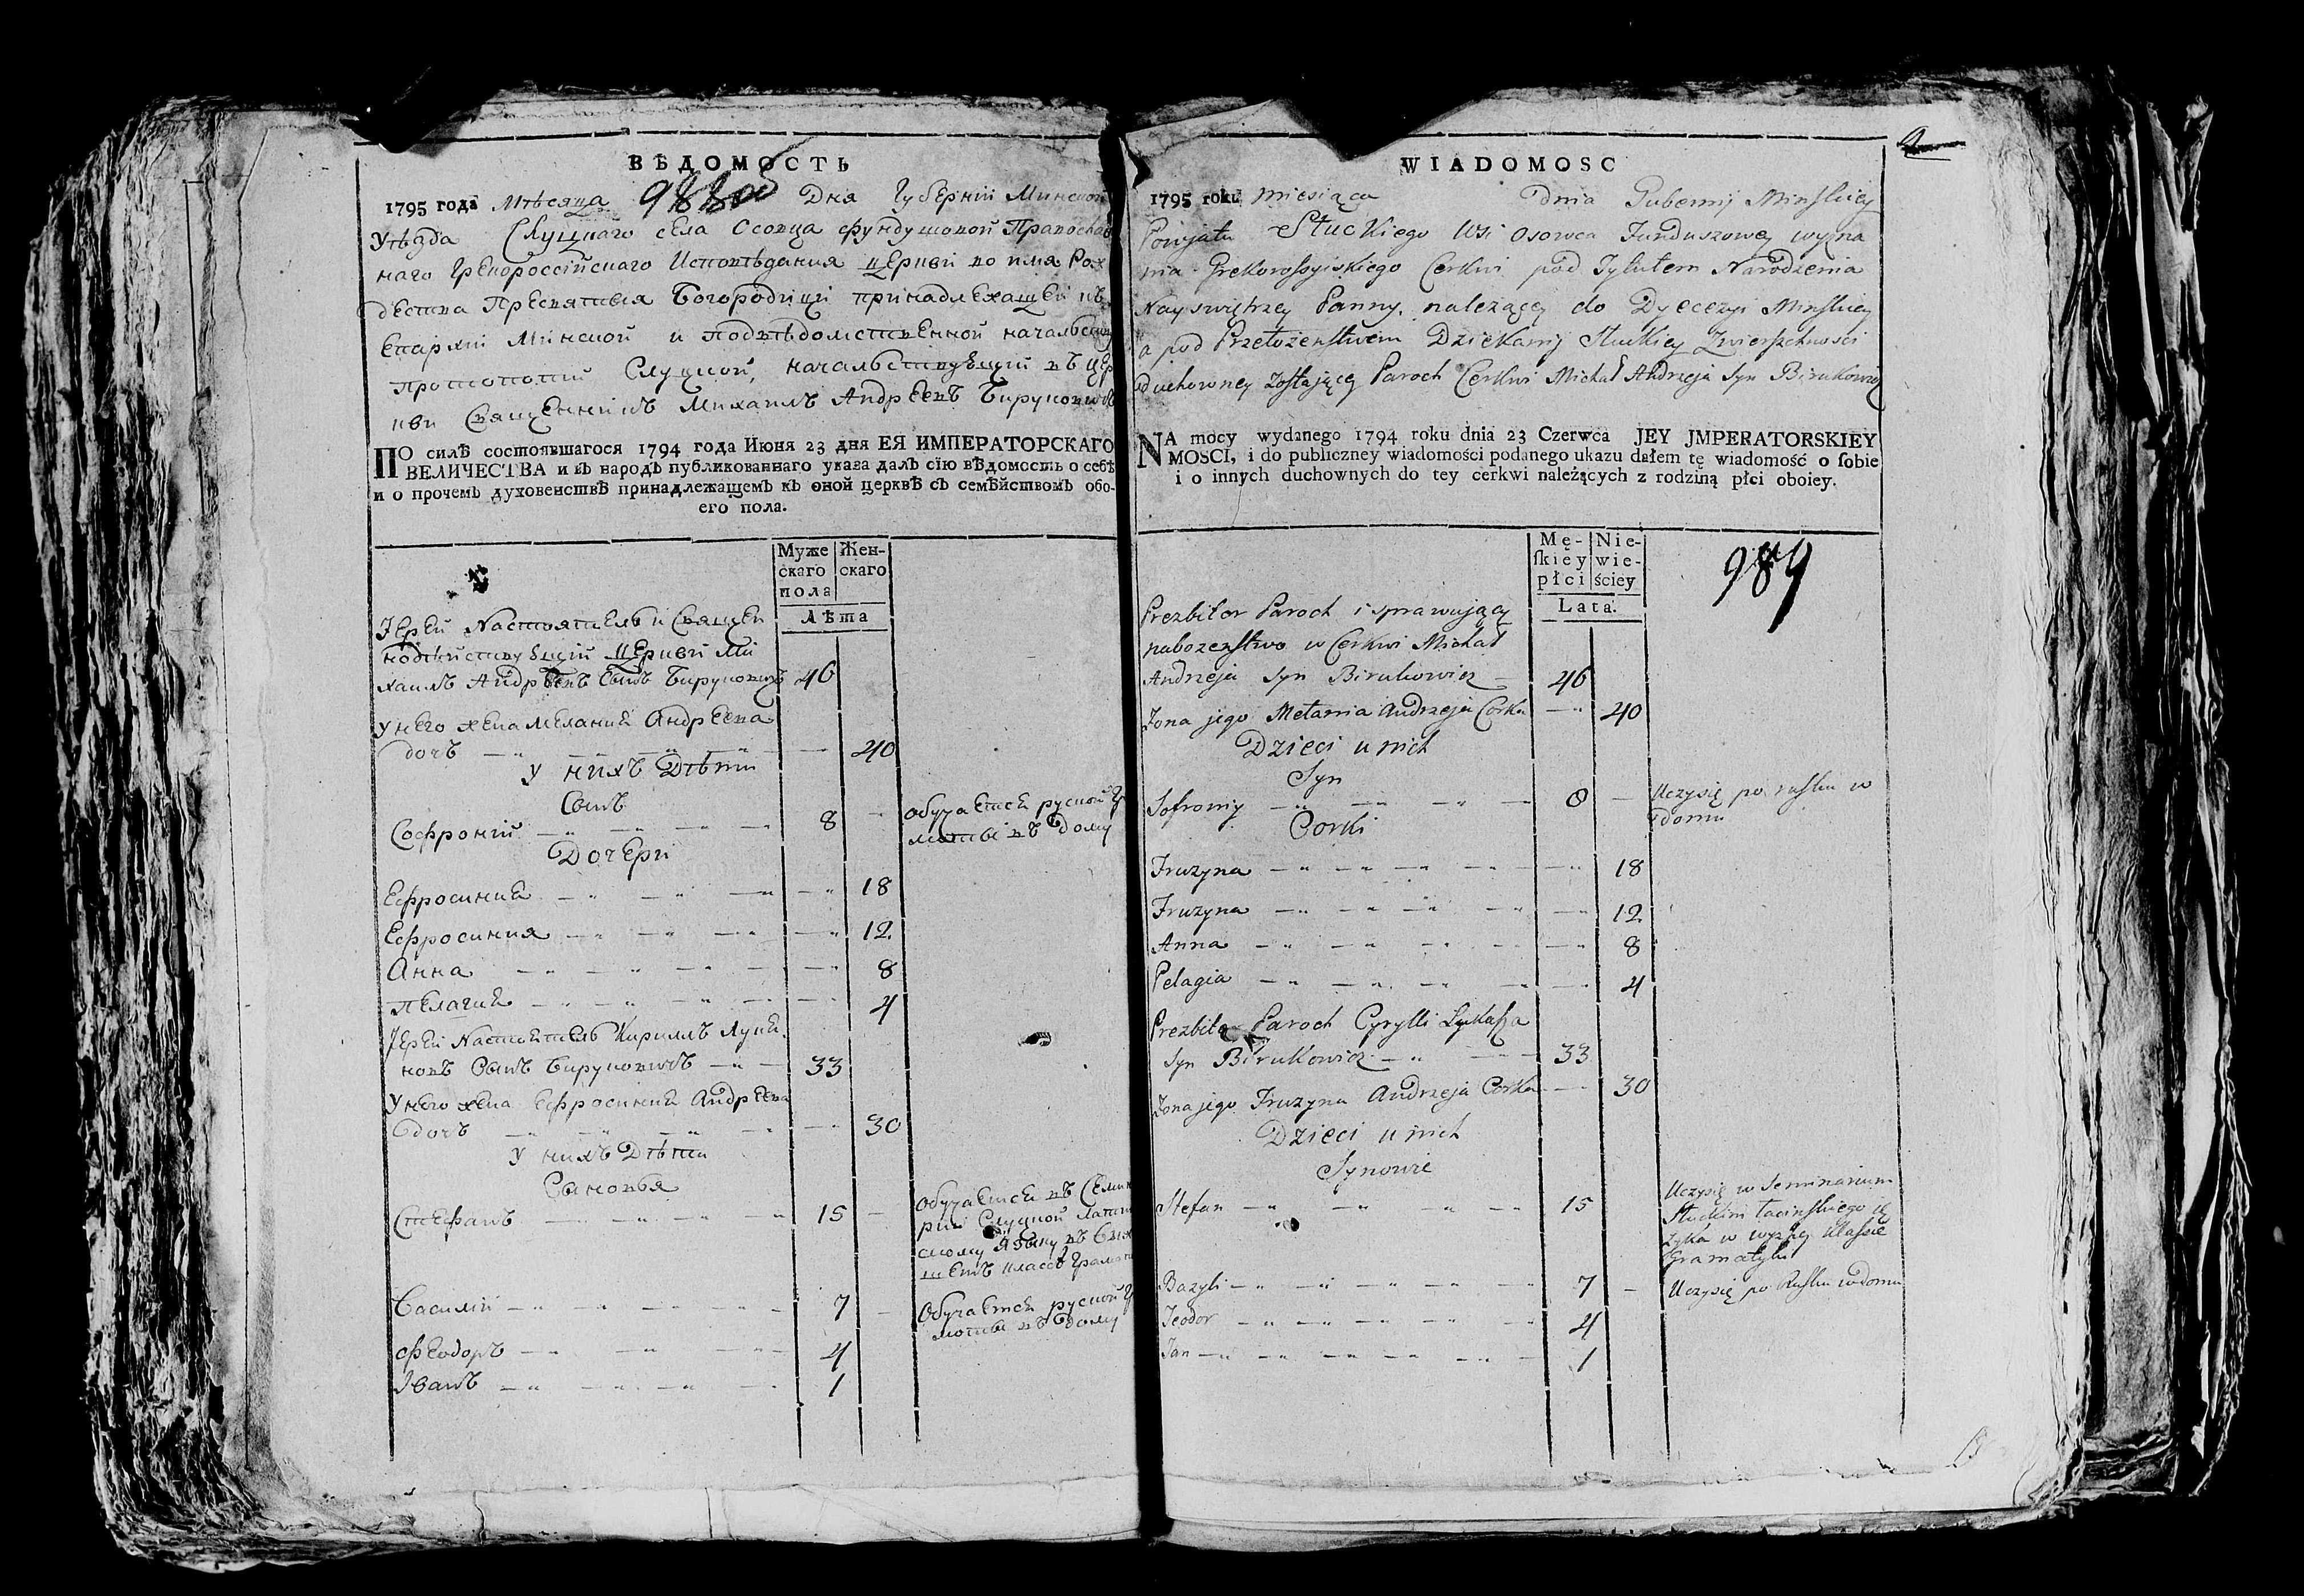 ВѢДОМОСТЬ
1795 года Мѣсяца 988об Дня Губерніи Минской
Уѣзда Слуцкаго села Осовца фундушовой Православ
наго Грекороссійскаго Исповѣданія Церкви во имя Рож
дества Пресвятыя Богородици принадлежащей къ
Епархіи Минской и подвѣдомственной начальству
протопопіи Слуцкой, начальствующій въ цер
кви Священникъ Михаилъ Андреевъ Бируковичъ
ПО силѣ состоявшагося 1794 года Июня 23 дня ЕЯ ИМПЕРАТОРСКАГО
ВЕЛИЧЕСТВА и въ народъ публикованнаго указа далъ сію вѣдомость о себѣ
и о прочемъ духовенствѣ принадлежащемъ къ оной церквѣ съ семѣйствомъ обо-
его пола.
Муже Жен-
скаго скаго
пола
Лѣта
Іерей Настоятель и Священ
нодѣйствующій Церкви Ми
хаилъ Андреевъ Сынъ Бируковичъ 46
У него жена Меланія Андреева
дочь 40
У нихъ Дѣти
Сынъ
Софроній 8 Обучается руской Гра
мотѣ въ дому
Дочери
Ефросинія 18
Ефросиния 12
Анна 8
Пелагия 4
Іерей Настоятель Кирилъ Луки
новъ Сынъ Бируковичъ 33
У него жена Ефросиния Андреева
дочь 30
У нихъ Дѣти
Сыновья
Стефанъ 15 Обучается въ Семина
ріи Слуцкой Латин
скому Языку въ Выс
шемъ класѣ Грамати
Василій 7 Обучается руской Гра
мотѣ въ дому
Феодоръ 4
Іванъ 1
WIADOMOSC
1795 roku miesiąca dnia Gubernij Minskiey
Powjatu Słuckiego Wsi Osowca Funduszowey wyzna
nia Grekorossyiskiego Cerkwi pod Tytułem Narodzenia
Nayswiętszey Panny, należącey do Dyecezyi Minskiey
a pod Przełożenstwem Dziekanij Słuckiey Zwierzchnosci
Duchowney zostaiącey Paroch Cerkwi Michał Andrzeja Syn Birukowicz
NA mocy wydanego 1794 roku dnia 23 Czerwca JEY JMPERATORSKIEY
MOSCI, i do publiczney wiadomości podanego ukazu dałem tę wiadomość o sobie
i o innych duchownych do tey cerkwi należących z rodziną płci oboiey.
Mę- Nie-
skiéy wie-
płci ściey
Lata.
989
Prezbiter Paroch i sprawujący
nabozenstwo w Cerkwi Michał
Andrzeja Syn Birukowicz 46
Zona jego Melania Andrzeja Corka 40
Dzieci u nich
Syn
Sofroniy 8 Uczysię po rusku w
domu
Corki
Fruzyna 18
Fruzyna 12
Anna 8
Pelagia 4
Prezbiter Paroch Cyrylli Łukasza
Syn Birukowicz 33
Zona jego Fruzyna Andrzeja Corka 30
Dzieci u nich
Synowie
Stefan 15 Uczysię w Seminarium
Słuckim łacinskiego ję
zyka w wyzszey klassie
Gramatyki
Bazyli 7 Uczysię po Rusku w domu
Teodor 4
Jan 1